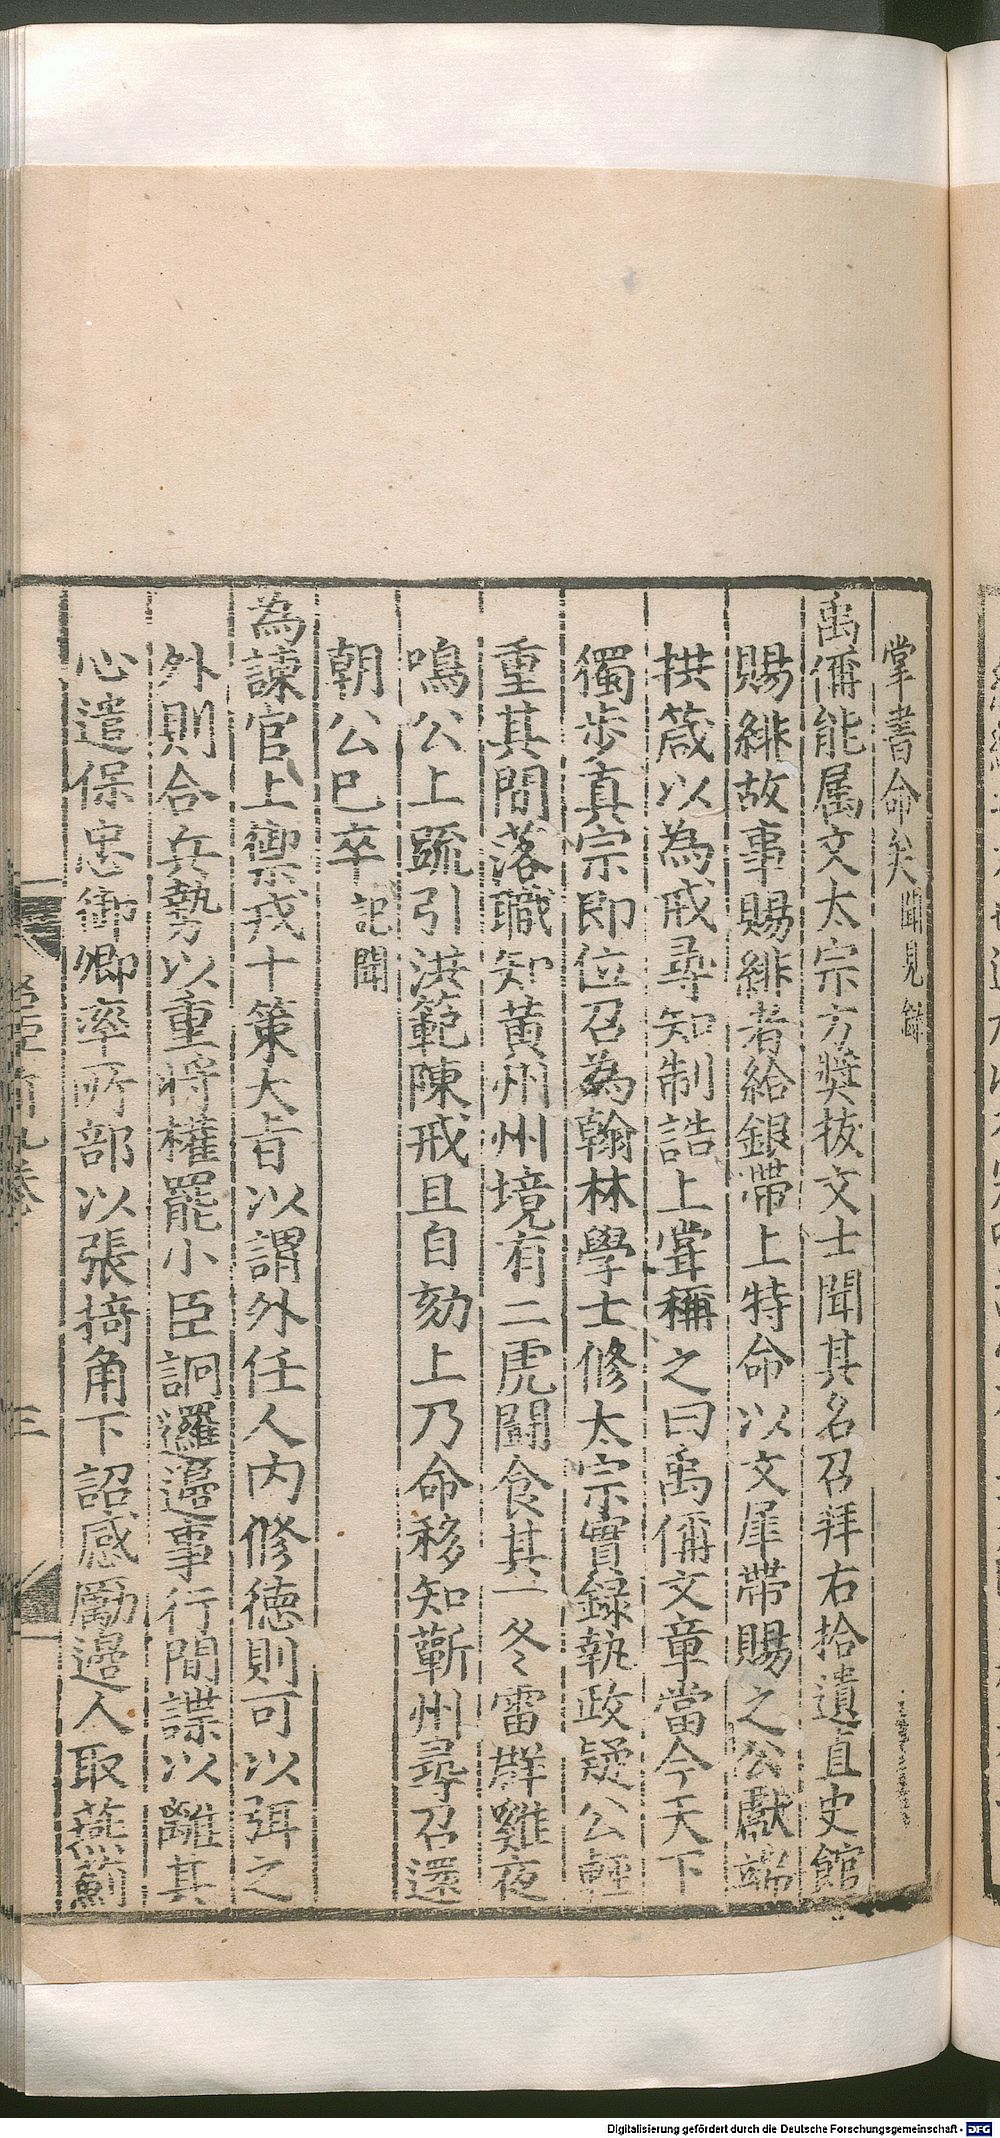 掌書命矣聞見錄
禹偁能属文太宗方奬拔文士聞其名召拜右拾遺直史館
賜緋故事賜緋者給銀帶上特命以文犀帶賜之公獻端
拱箴以為戒尋知制誥上甞稱之曰禹偁文章當今天下
獨步真宗即位召為翰林學士修太宗實録執政疑公輕
重其間落職知黃州州境有二虎鬪食其一冬雷群雞夜
鳴公上疏引洪範陳戒且自劾上乃命移知蘄州尋召還
朝公已卒記聞
為諫官上禦戎十策大㫖以謂外任人内修徳則可以弭之
外則合兵勢以重將權罷小臣詗邏邊事行間諜以離其
心遣保忠御卿率所部以張掎角下詔感勵邊人取燕薊
三
Digitalisierung gefördert durch die Deutsche Forschungsgemeinschaft - DFG